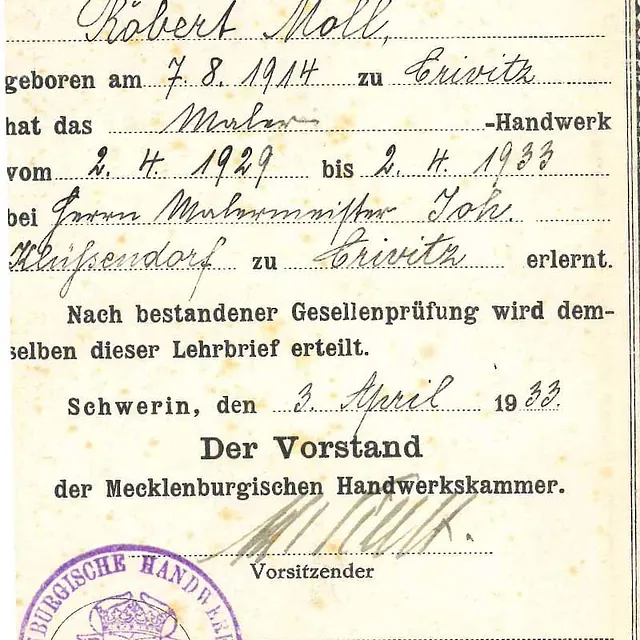 Robert Moll,
geboren am 7. 8. 1914 zu Crivitz
hat das Maler -Handwerk
vom 2. 4. 1929 bis 2. 4. 1933
bei Herrn Malermeister Joh.
Klüßendorf zu Crivitz erlernt.
Nach bestandener Gesellenprüfung wird dem-
selben dieser Lehrbrief erteilt.
Schwerin, den 3. April 1933.
Der Vorstand
der Mecklenburgischen Handwerkskammer.
Vorsitzender
BURGISCHE HANDWER